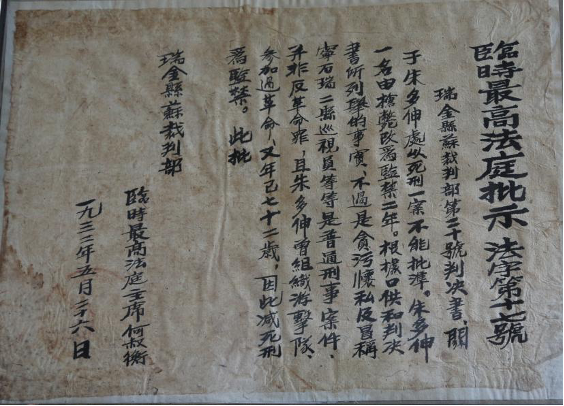 臨時最高法庭批示 法字第十七號
瑞金縣蘇裁判部第二十號判決書，關
于朱多伸處以死刑一案不能批準。朱多伸
一名由槍斃改爲監禁二年。根據口供和判決
書所列舉的事實，不過是貪污懷私及冒稱
寧石瑞三縣巡視員等等是普通刑事案件，
并非反革命罪，且朱多伸曾組織游擊隊、
參加過革命，又年已七十二歲，因此減死刑
爲監禁。 此批
瑞金縣蘇裁判部
臨時最高法庭主席何叔衡
一九三二年五月二十六日